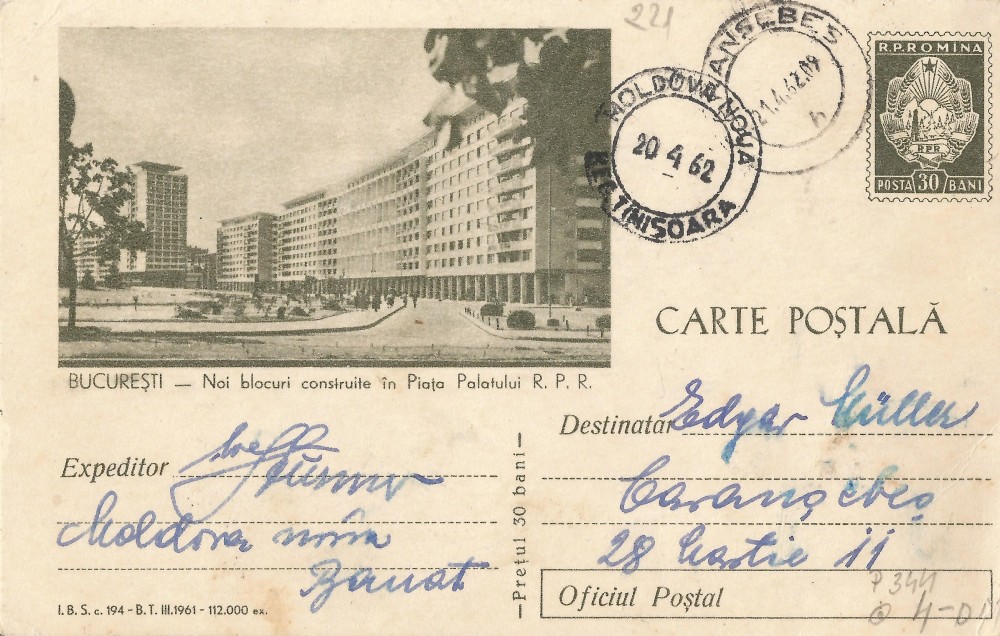 221
CARANSEBEȘ
21.4.62.09
h
MOLDOVA NOUĂ
20 4 62
REG. TIMIȘOARA
R.P.ROMINA
RPR
POSTA 30 BANI
CARTE POȘTALĂ
BUCUREȘTI — Noi blocuri construite în Piața Palatului R. P. R.
Destinatar Edgar Müller
Caransebeș
28 Martie 11
Expeditor
Moldova nouă
Banat
—Prețul 30 bani—
Oficiul Poștal
P 344
I. B. S. c. 194 - B. T. III.1961 - 112.000 ex.